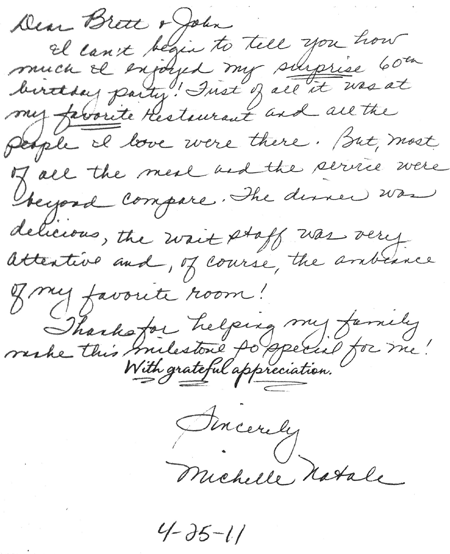 Dear Brett & John
I can't begin to tell you how
much I enjoyed my surprise 60th
birthday party! First of all it was at
my favorite restaurant and all the
people I love were there. But, most
of all the meal and the service were
beyond compare. The dinner was
delicious, the wait staff was very
attentive and, of course, the ambiance
of my favorite room!
Thanks for helping my family
make this milestone so special for me!
With grateful appreciation.
Sincerely
Michelle Natale
4-25-11